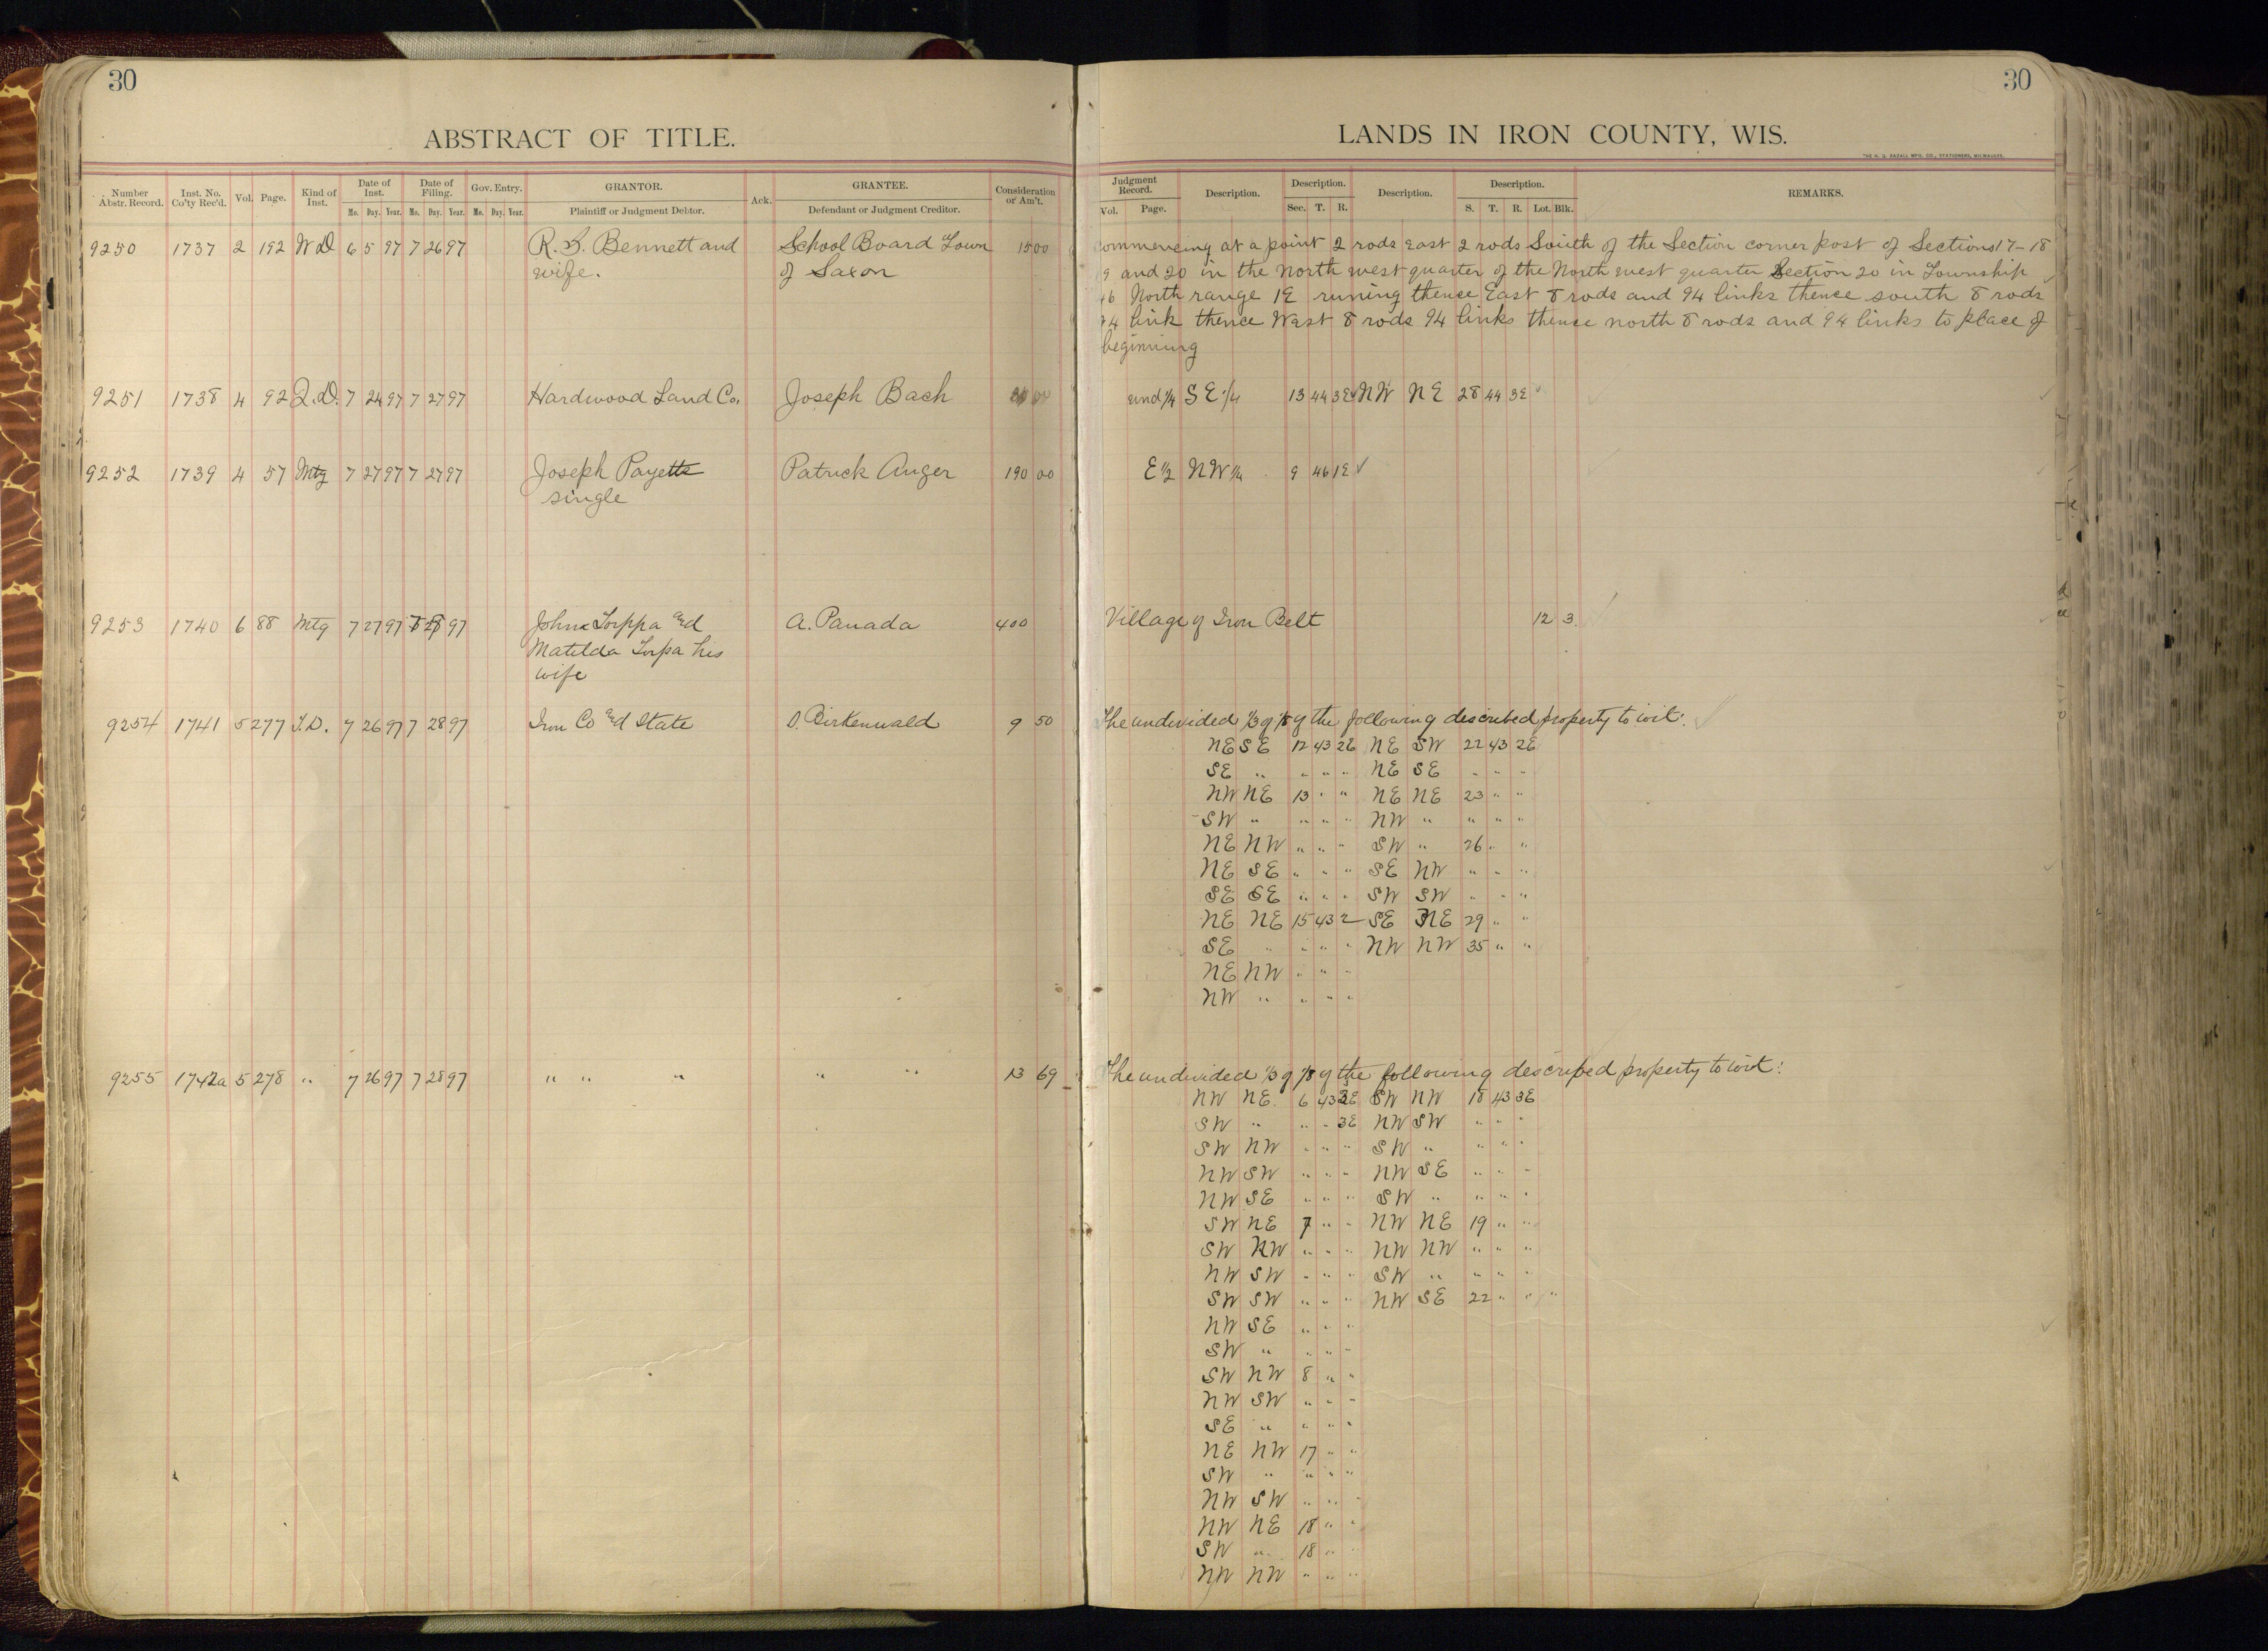 30
ABSTRACT OF TITLE.
Number Abstr. Record. Inst. No. Co'ty Rec'd. Vol. Page. Kind of Inst. Date of Inst. Date of Filing. Gov. Entry. GRANTOR. Ack. GRANTEE. Consideration or Am't.
Mo. Day. Year. Mo. Day. Year. Mo. Day. Year. Plaintiff or Judgment Debtor. Defendant or Judgment Creditor.
9250 1737 2 192 W D 6 5 97 7 26 97 R. S. Bennett and School Board Town 15 00
wife. of Saxon
9251 1738 4 92 Q.D. 7 24 97 7 27 97 Hardwood Land Co. Joseph Bach
9252 1739 4 57 Mtg 7 27 97 7 27 97 Joseph Payette Patrick Auger 190 00
single
9253 1740 6 88 Mtg 7 27 97 7 97 John Torppa and A. Panada 400
Matilda Torpa his
wife
9254 1741 5 277 T.D. 7 26 97 7 28 97 Iron Co and State D. Birkenwald 9 50
9255 1742a 5 278 " 7 26 97 7 28 97 " " " " " 13 69
30
LANDS IN IRON COUNTY, WIS.
Judgment Record. Description. Description. Description. Description. REMARKS.
Vol. Page. Sec. T. R. S. T. R. Lot. Blk.
Commencing at a point 2 rods East 2 rods South of the Section corner post of Sections 17-18
19 and 20 in the North west quarter of the North west quarter Section 20 in Township
46 North range 1E runing thence East 8 rods and 94 links thence south 8 rods
94 link thence West 8 rods 94 links thence north 8 rods and 94 links to place of
beginning
und 1/4 SE 1/4 13 44 3E NW NE 28 44 3E
E 1/2 NW 1/4 9 46 1E
Village of Iron Belt 12 3
The undivided 1/3 of 1/8 of the following described property to wit:
NE SE 12 43 2E NE SW 22 43 2E
SE " " " " NE SE " " "
NW NE 13 " " NE NE 23 " "
SW " " " " NW " " " "
NE NW " " " SW " 26 " "
NE SE " " " SE NW " " "
SE SE " " " SW SW " " "
NE NE 15 43 2 SE NE 29 " "
SE " " " " NW NW 35 " "
NE NW " " "
NW " " " "
The undivided 1/3 of 1/8 of the following described property to wit:
NW NE 6 43 3E SW NW 18 43 3E
SW " " " 3E NW SW " " "
SW NW " " " SW " " " "
NW SW " " " NW SE " " "
NW SE " " " SW " " " "
SW NE 7 " " NW NE 19 " "
SW NW " " " NW NW " " "
NW SW " " " SW " " " "
SW SW " " " NW SE 22 " " "
NW SE " " "
SW " " " "
SW NW 8 " "
NW SW " " "
SE " " " "
NE NW 17 " "
SW " " " "
NW SW " " "
NW NE 18 " "
SW " 18 "
NW NW " " "